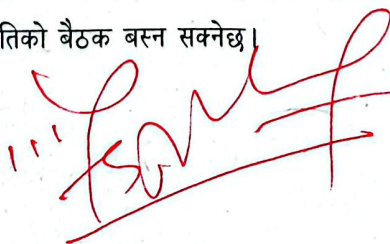 तिको बैठक बस्न सक्नेछ।